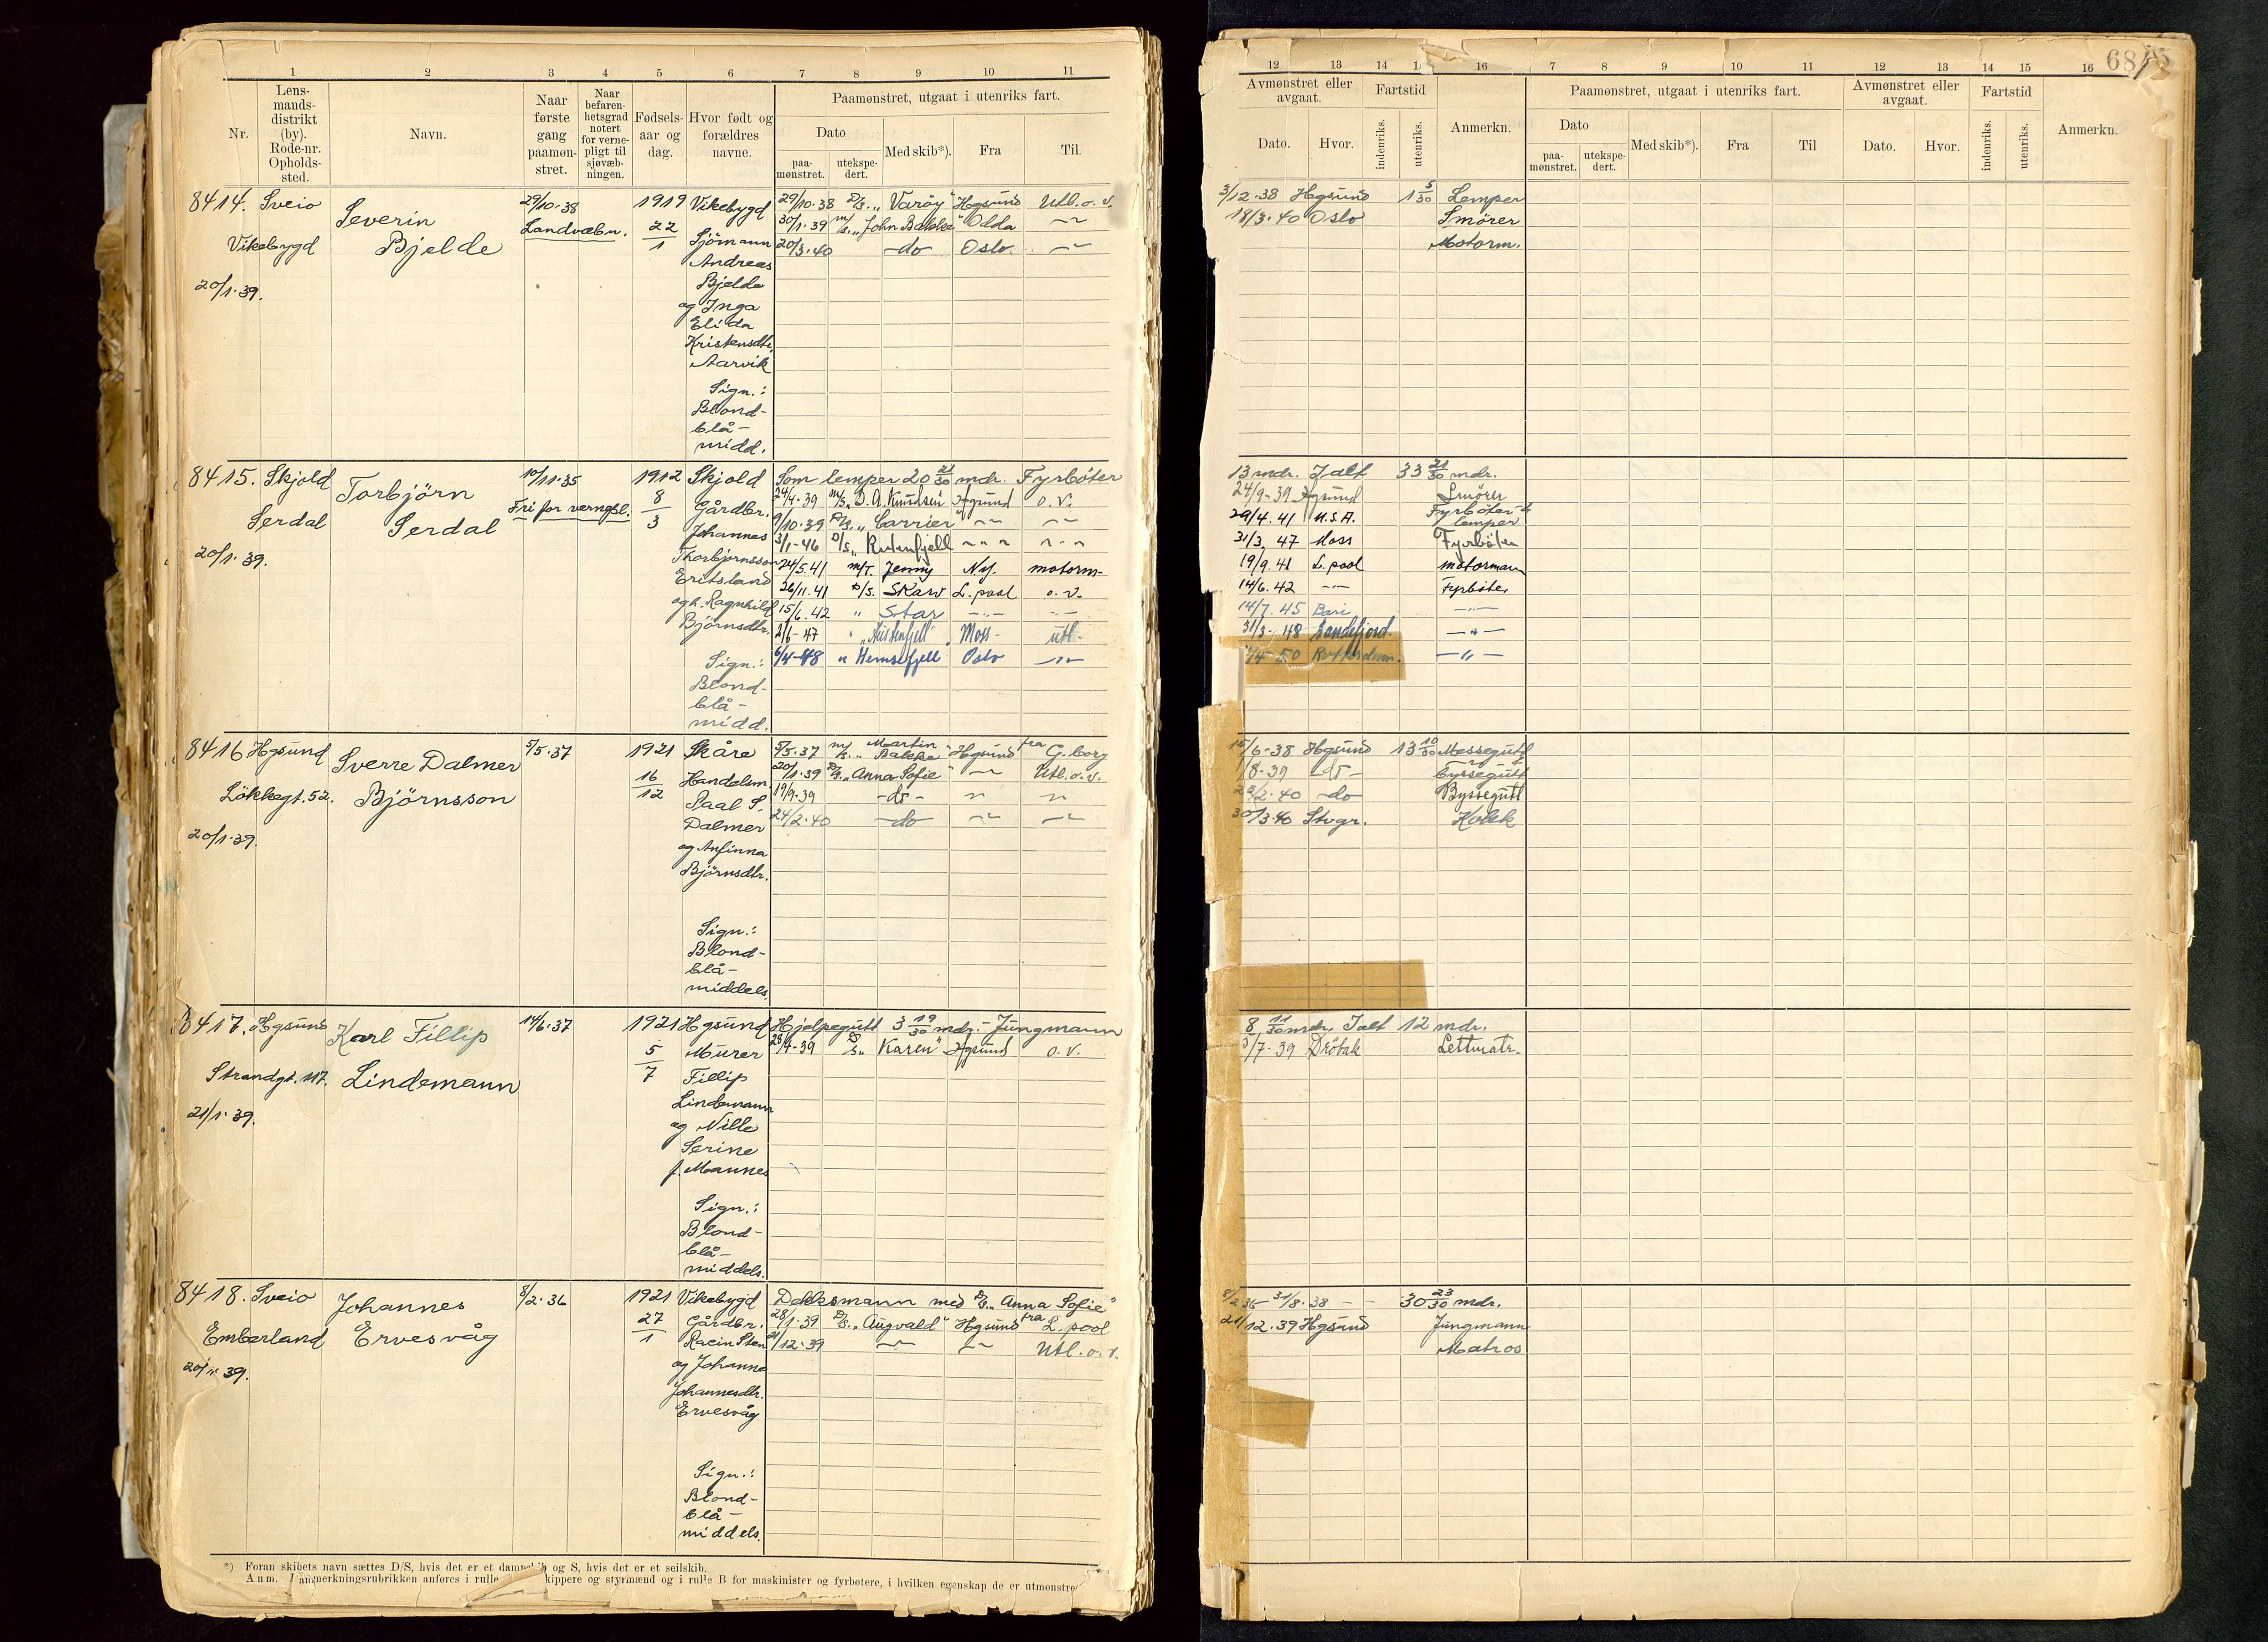 1 2 3 4 5 6 7 8 9 10 11
Nr.
Lens-
mands-
distrikt
(by).
Rode-nr.
Opholds-
sted.
Navn.
Naar
første
gang
paamøn-
stret.
Naar
befaren-
hetsgrad
notert
for verne-
pligt til
sjøvæb-
ningen.
Fødsels-
aar og
dag.
Hvor født og
forældres
navne.
Paamønstret, utgaat i utenriks fart.
Dato
paa-
mønstret.
utekspe-
dert.
Med skib*).
Fra
Til.
12 13 14 16 7 8 9 10 11 12 13 14 15 16
Avmønstret eller
avgaat.
Dato. Hvor.
Fartstid
indenriks. utenriks.
Anmerkn.
Paamønstret, utgaat i utenriks fart.
Dato
paa-
mønstret.
utekspe-
dert.
Med skib*). Fra Til
Avmønstret eller
avgaat.
Dato. Hvor.
Fartstid
indenriks. utenriks.
Anmerkn.
8414. Sveio
Vikebygd
20/1·39.
Severin
Bjelde
29/10·38
Landvæbn.
1919
22
1
Vikebygd
Sjömann
Andreas
Bjelde
og Inga
Elida
Kristensdtr.
Aarvik
Sign.:
Blond-
blå-
midd.
29/10·38 D/S. „Varöy" Hgsund Utl. o. v.
30/1·39 m/s. „John Bakke" Odda -"-
20/3·40 -do- Oslo -"-
3/12·38 Hgsund 1 5/30 Lemper
18/3·40 Oslo Smörer
Motorm.
8415. Skjold
Serdal
20/1·39.
Torbjörn
Serdal
10/11·35
Fri for vernepl.
1912
8
3
Skjold
Gårdbr.
Johannes
Thorbjørnsson
Eritsland
og h. Ragnhild
Björnsdtr.
Sign.:
Blond-
blå-
midd.
Som lemper 20 21/30 mdr. Fyrböter
24/4-39 m/s. „D. A. Knudsen" Hgsund o. v.
9/10·39 D/S. „Carrier" -"- -"-
3/1-46 D/S. „ Rutenfjell -"- -"-
24/5.41 m/T. Jenny N.Y. motorm-
26/11.41 D/S. Skaw L. pool o. v.
15/6.42 " Star -"- -"-
2/6-47 " „Austenfjell" Moss- utl-
6/4-48 " Hemsefjell Oslo -"-
13 mdr. Ialt 33 21/30 mdr.
24/9-39 Hgsund Smörer
29/4.41 U.S.A. Fyrböter &
lemper
31/3, 47 Moss Fyrböter
19/9.41 L. pool motorman
14/6.42 -"- Fyrböter
14/7.45 Bari -"-
31/3-48 Sandefjord. -"-
/4-50 Rotterdam. -"-
8416 Hgsund
Lökkegt. 52.
20/1·39.
Sverre Dalmer
Björnsson
5/5·37
1921
16
12
Skåre
Handelsm.
Paal S.
Dalmer
og Anfinna
Björnsdtr.
Sign.:
Blond-
blå-
middels.
5/5·37 m/s. „Martin
Bakke" Hgsund fra G. borg
20/1·39 D/S. „Anna Sofie" -"- Utl. o. v.
19/9·39 -do- -"- -"-
24/2·40 -do -"- -"-
15/6-38 Hgsund 13 10/30 Messegutt
/8-39 -do- Byssegutt
/2·40 -do Byssegutt
30/3·40 Stvgr. Kokk
8417. Hgsund
Strandgt. 117.
21/1·39.
Karl Fillip
Lindemann
14/6·37
1921
5
7
Hgsund
Murer
Fillip
Lindemann
og Nille
Serine
f. Mannes
Sign.:
Blond-
blå-
middels.
Hjelpegutt 3 19/30 mdr. - Jungmann
28/4-39 D/S. „Karen" Hgsund o. v.
8 11/30 mdr. Ialt 12 mdr.
5/7·39 Dröbak Lettmatr.
8418. Sveio
Emberland
20/1·39.
Johannes
Ervesvåg
8/2·36
1921
27
1
Vikebygd
Gårdbr.
Racin Sten
og Johanna
Johannesdtr.
Ervesvåg
Sign.:
Blond-
blå-
middels.
Dekksmann med D/S. „Anna Sofie"
28/1·39 D/S. „Augvald" Hgsund fra L. pool
21/12·39 -"- -"- Utl. o. v.
8/2 36 - 31/8·38 - - 30 23/30 mdr.
21/12·39 Hgsund Jungmann
Matros
*) Foran skibets navn sættes D/S, hvis det er et dampskib og S, hvis det er et seilskib.
Anm. I anmerkningsrubrikken anføres i rulle kippere og styrmænd og i rulle B for maskinister og fyrbøtere, i hvilken egenskap de er utmønstre